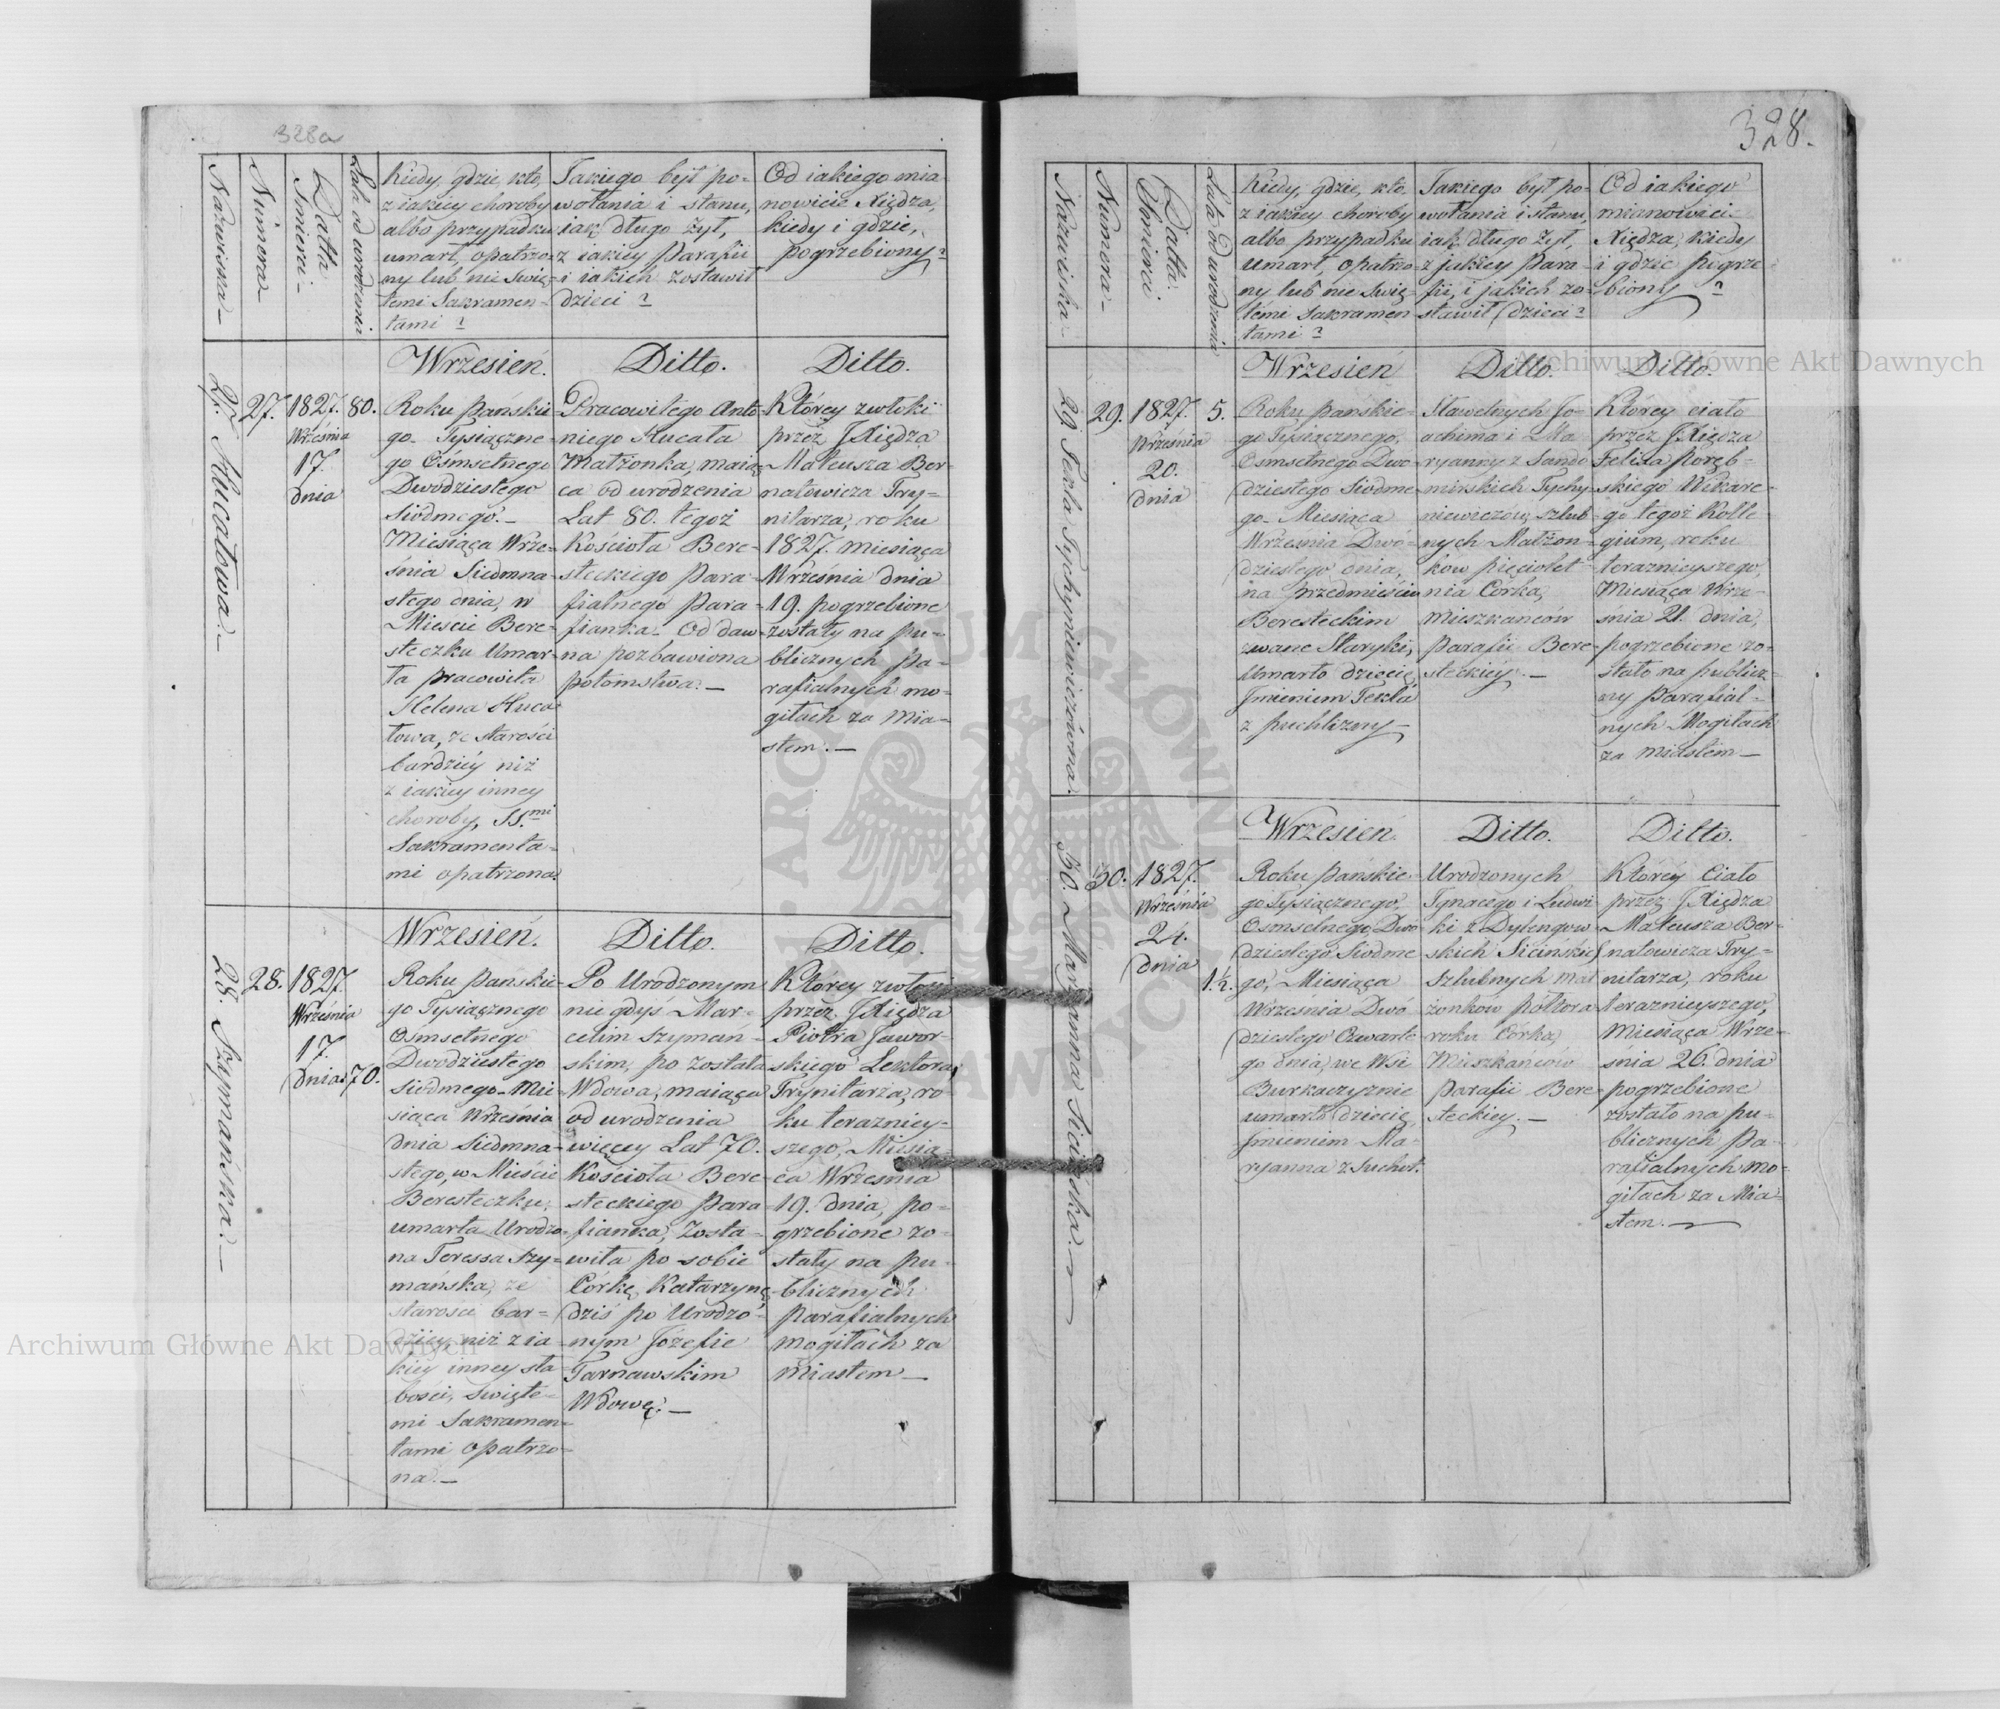 328a
Nazwiska
Numera
Datta
Smierci
Lata od urodzenia
Kiedy, gdzie, kto,
z iakiey choroby
albo przypadku
umarł, opatrzo-
ny lub nie Swię-
temi Sakramen-
tami?
Jakiego był po-
wołania i stanu,
iak długo żył,
z iakiey Parafii
i iakich zostawił
dzieci?
Od iakiego mia
nowicie Xiędza,
kiedy i gdzie,
pogrzebiony?
27. Hucałowa.
27.
1827.
Września
17.
dnia
80.
Wrzesień.
Roku Pańskie-
go Tysiączne
go Ośmsetnego
Dwodziestego
Siódmego.
Miesiąca Wrze-
śnia Siedmna-
stego dnia, w
Mieście Bere-
steczku Umar-
ła pracowita
Helena Huca
łowa, ze starości
bardziey niż
z iakiey inney
choroby, SS.mi
Sakramenta-
mi opatrzona.
Ditto.
Pracowitego Anto
niego Hucała
Małżonka, maią-
ca od urodzenia
Lat 80. tegoż
Kościoła Bere-
steckiego Para-
fialnego Para-
fianka. Od daw-
na pozbawiona
potomstwa.
Ditto.
Którey zwłoki
przez JXiędza
Mateusza Ber-
natowicza Try-
nitarza, roku
1827. miesiąca
Września dnia
19. pogrzebione
zostały na pu-
blicznych Pa-
rafialnych mo-
giłach za Mia-
stem.
28. Szymańska.
28.
1827.
Września
17.
dnia
70.
Wrzesień.
Roku Pańskie-
go Tysiącznego
Ośmsetnego
Dwodziestego
Siódmego Mie
siąca Września
dnia Siedmna-
stego, w Mieście
Beresteczku,
umarła Urodzo
na Teressa Szy-
mańska, ze
starosci bar-
dziey, niż z ia
kiey inney sła
bości, Swięte-
mi Sakramen-
tami opatrzo-
na.
Ditto.
Po Urodzonym
niegdyś Mar-
celim Szymań-
skim, po została
Wdowa, maiąca
od urodzenia
więcey Lat 70.
Kościoła Bere-
steckiego Para
fianka, Zosta-
wiła po sobie
Córkę, Katarzynę
dziś po Urodzo-
nym Józefie
Tarnawskim
Wdowę.
Ditto.
Którey zwłoki
przez JXiędza
Piotra Jawor-
skiego Lektora,
Trynitarza, ro-
ku terazniey-
szego, Miesią
ca Wrzesnia
19. dnia, po-
grzebione zo-
stały na pu-
blicznych
Parafialnych
mogiłach za
Miastem
328.
Nazwiska
Numera
Datta
Smierci
Lata od urodzenia
Kiedy, gdzie, kto,
z iakiey choroby
albo przypadku
umarł, opatrzo
ny lub nie Swię-
temi Sakramen
tami?
Jakiego był po-
wołania i stanu,
iak długo żył,
z jakiey Para-
fii, i jakich zo-
stawił dzieci?
Od iakiego
mianowicie
Xiędza, kiedy
i gdzie pogrze-
biony?
29. Tekla Tychyniewiczówna.
29.
1827.
Września
20.
dnia
5.
Wrzesień
Roku Pańskie-
go Tysiącznego,
Ośmsetnego Dwo
dziestego Siódme
go Miesiąca
Września Dwó-
dziestego dnia,
na przedmieściu
Beresteckim
zwane Staryki,
Umarło dziecię
Jmieniem Tekla
z puchliny
Ditto.
Sławetnych Jo-
achima i Ma
ryanny z Sando
mirskich Tychy-
niewiczów szlub
nych Małżon-
ków pięciolet-
nia Córka,
Mieszkańców
Parafii Bere-
steckiey.
Ditto.
Którey ciało
przez JXiędza
Felixa Poręb-
skiego Wikare-
go tegoż Kolle-
gium, roku
teraznieyszego,
Miesiąca Wrze-
śnia 21. dnia,
pogrzebione zo-
stało na publicz-
ny Parafial-
nych Mogiłach
za miastem
30. Maryanna Sicińska.
30.
1827.
Września
24.
dnia
1½.
Wrzesień.
Roku Pańskie-
go Tysiącznego
Osmsetnego Dwó
dziestego Siodme
go, Miesiąca
Września Dwó
dziestego Czwarte
go dnia, we Wsi
Burkaczyznie
umarło dziecię
Jmieniem Ma-
ryanna z Suchot.
Ditto.
Urodzonych
Ignacego i Ludwi
ki z Dylengow-
skich Sicińskich
Szlubnych Mał
żonków półtora
roku Córka,
Mieszkańców
Parafii Bere-
steckiey.
Ditto.
Którey Ciało
przez JXiędza
Mateusza Ber-
natowicza Try-
nitarza, roku
teraznieyszego,
Miesiąca Wrze-
snia 26. dnia
pogrzebione
zostało na pu-
blicznych Pa-
rafialnych mo-
giłach za Mia-
stem.
Archiwum Główne Akt Dawnych
Archiwum Główne Akt Dawnych
ARCHIWUM GŁÓWNE AKT DAWNYCH